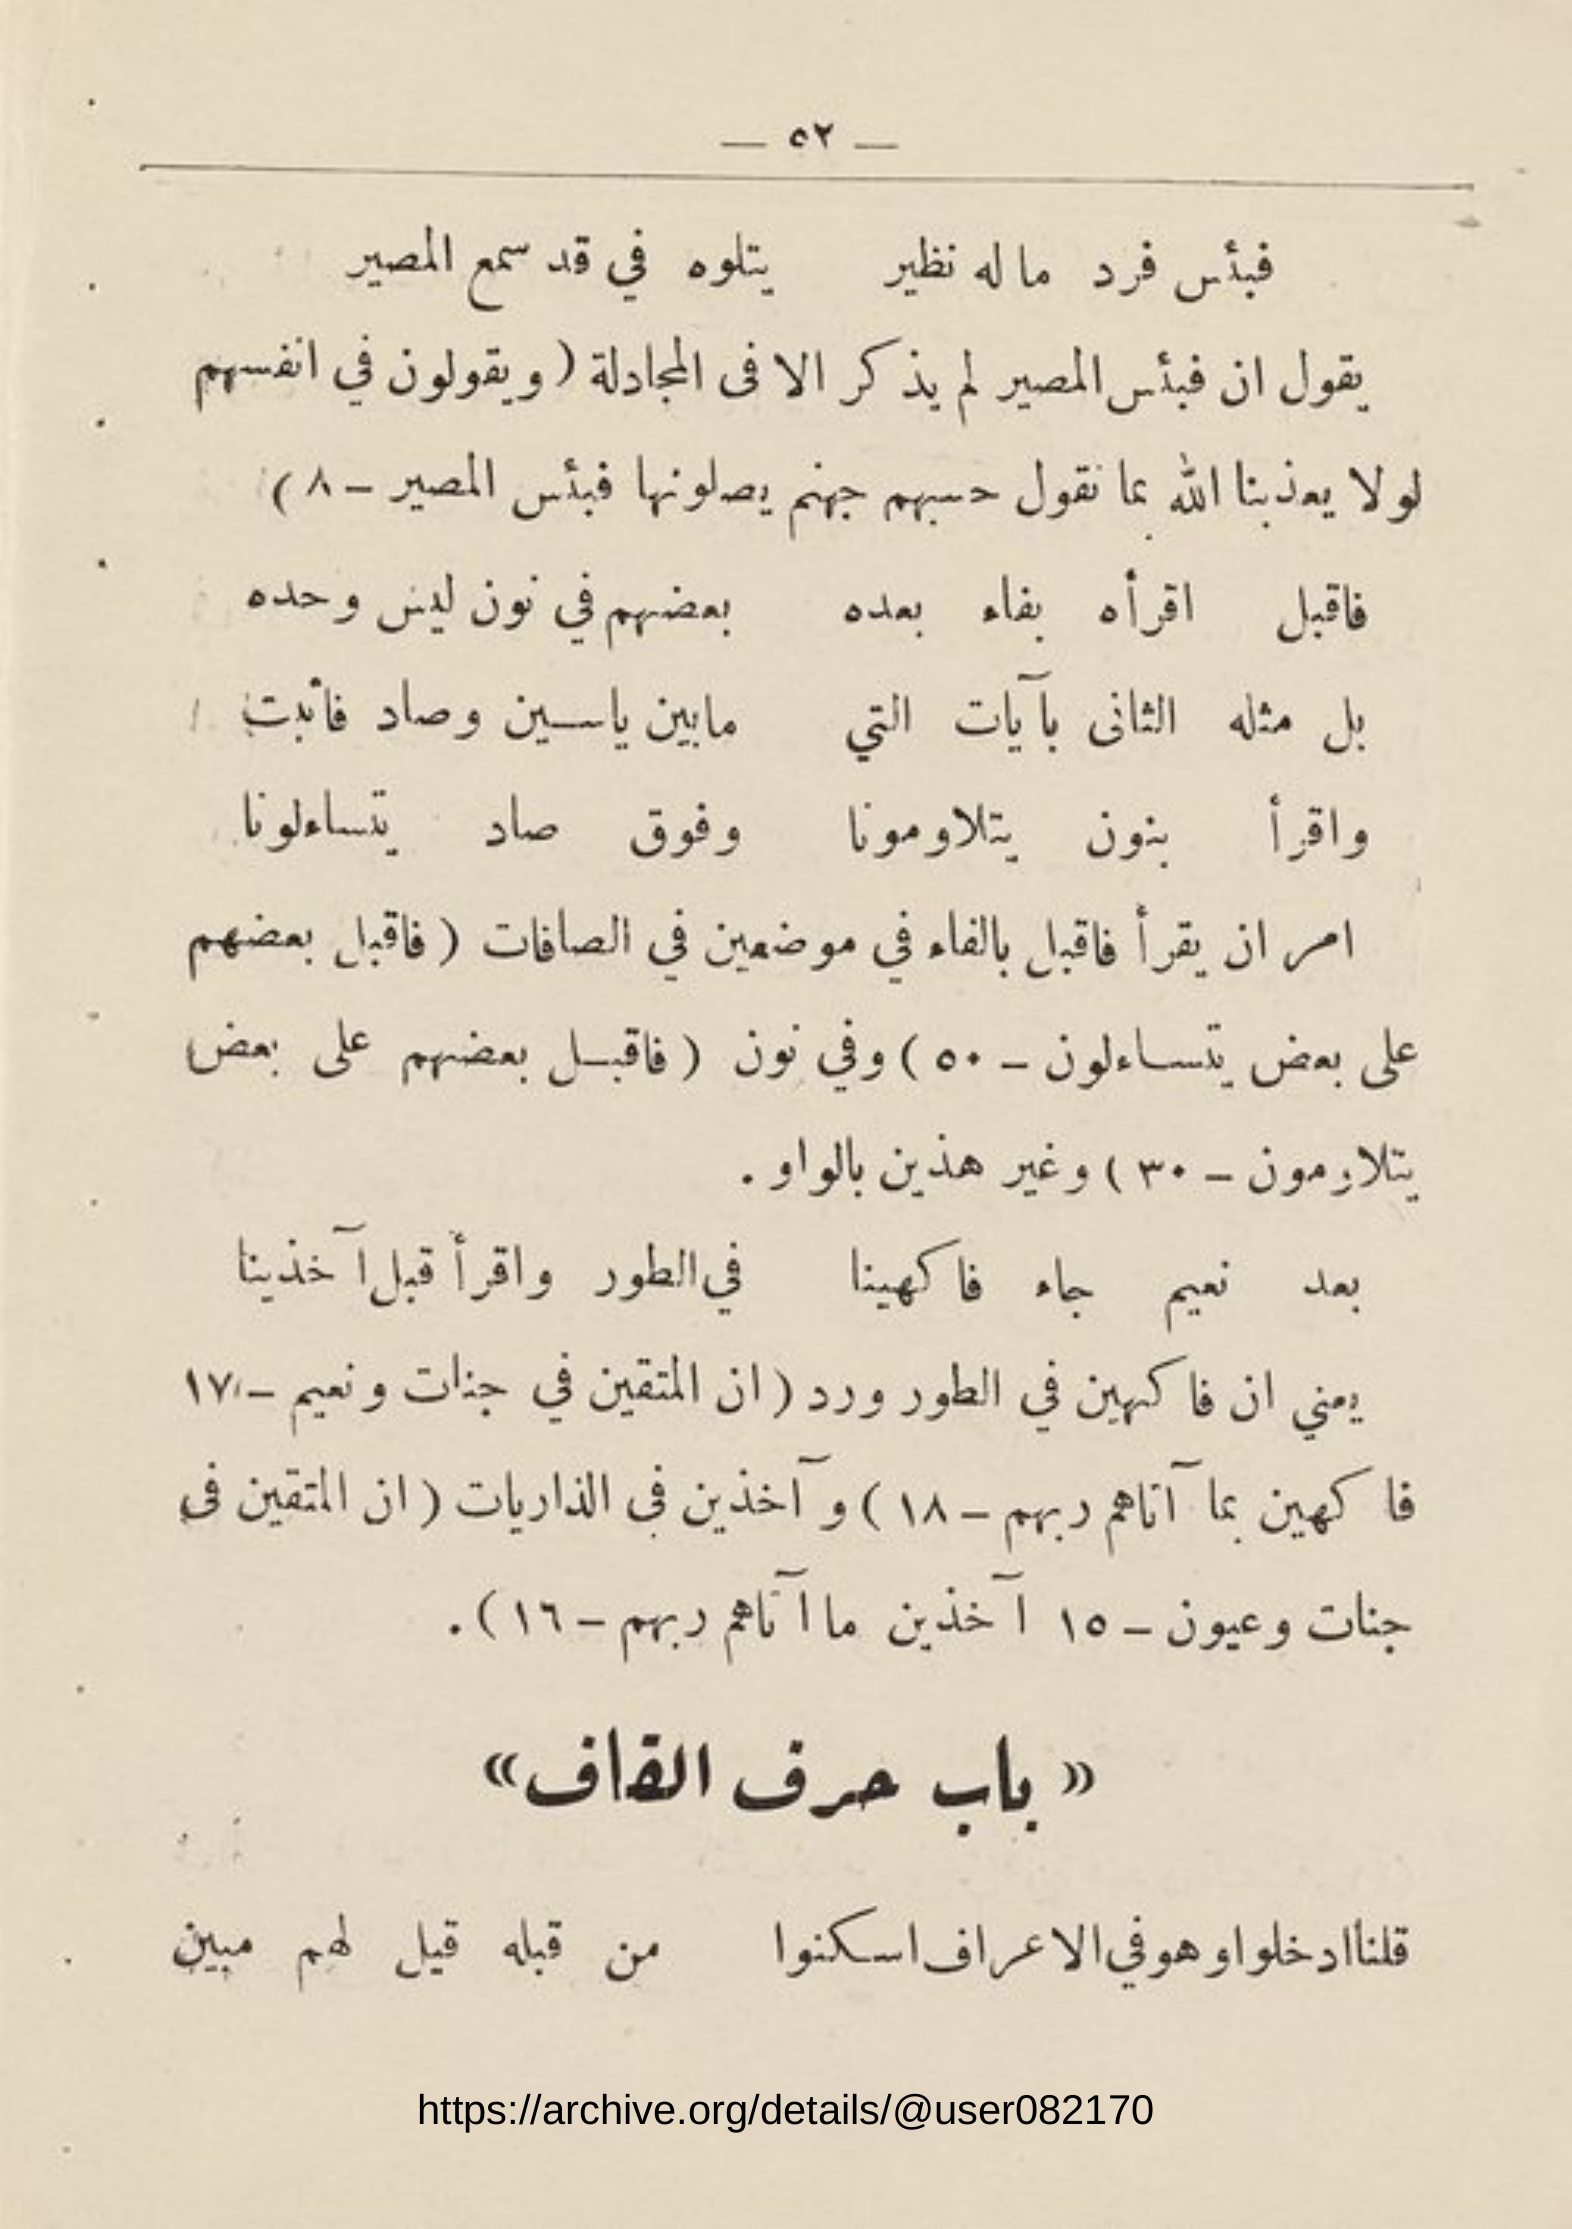 — ٥٢ —
فبئس فرد ماله نظير يتلوه في قد سمع المصير
يقول ان فبئس المصير لم يذكر الا فى المجادلة ( ويقولون في انفسهم
لولا يعذبنا الله بما نقول حسبهم جهنم يصلونها فبئس المصير – ٨ )
فاقبل اقرأه بفاء بعده بعضهم في نون ليس وحده
بل مثله الثانى بآيات التي مابين ياسين وصاد فأثبت
واقرأ بنون يتلاومونا وفوق صاد يتساءلونا
امر ان يقرأ فاقبل بالفاء في موضعين في الصافات ( فاقبل بعضهم
على بعض يتساءلون – ٥٠ ) وفي نون ( فاقبل بعضهم على بعض
يتلاومون – ٣٠ ) وغير هذين بالواو .
بعد نعيم جاء فاكهينا في الطور واقرأ قبل آخذينا
يعني ان فاكهين في الطور ورد ( ان المتقين في جنات ونعيم – ١٧
فاكهين بما آتاهم ربهم – ١٨ ) وآخذين فى الذاريات ( ان المتقين فى
جنات وعيون – ١٥ آخذين ما آتاهم ربهم – ١٦ ) .
« باب حرف القاف »
قلنا ادخلوا وهو في الاعراف اسكنوا من قبله قيل لهم مبين
https://archive.org/details/@user082170